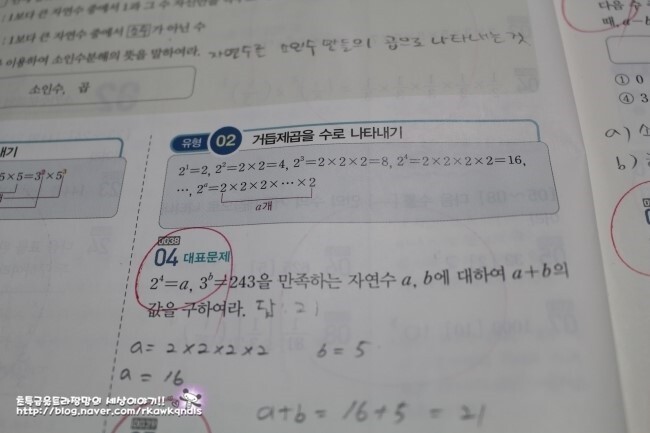 : 1보다 큰 자연수 중에서 1과 그 수
: 1보다 큰 자연수 중에서 소수가 아닌 수
이용하여 소인수분해의 뜻을 말하여라. 자연수를 소인수만들의 곱으로 나타내는 것
소인수, 곱
내기
5×5=3³×5³
유형 02 거듭제곱을 수로 나타내기
2¹=2, 2²=2×2=4, 2³=2×2×2=8, 2⁴=2×2×2×2=16,
…, 2ᵃ=2×2×2×…×2
a개
0038
04 대표문제
2⁴=a, 3ᵇ=243을 만족하는 자연수 a, b에 대하여 a+b의
값을 구하여라. 답 : 21
a = 2×2×2×2 b = 5
a = 16
a+b = 16+5 = 21
다음 수
때, a-b
① 0
④ 3
a)
b)
0039
초특급울트라짱맘의 세상이야기!!
http://blog.naver.com/rkawkqndls